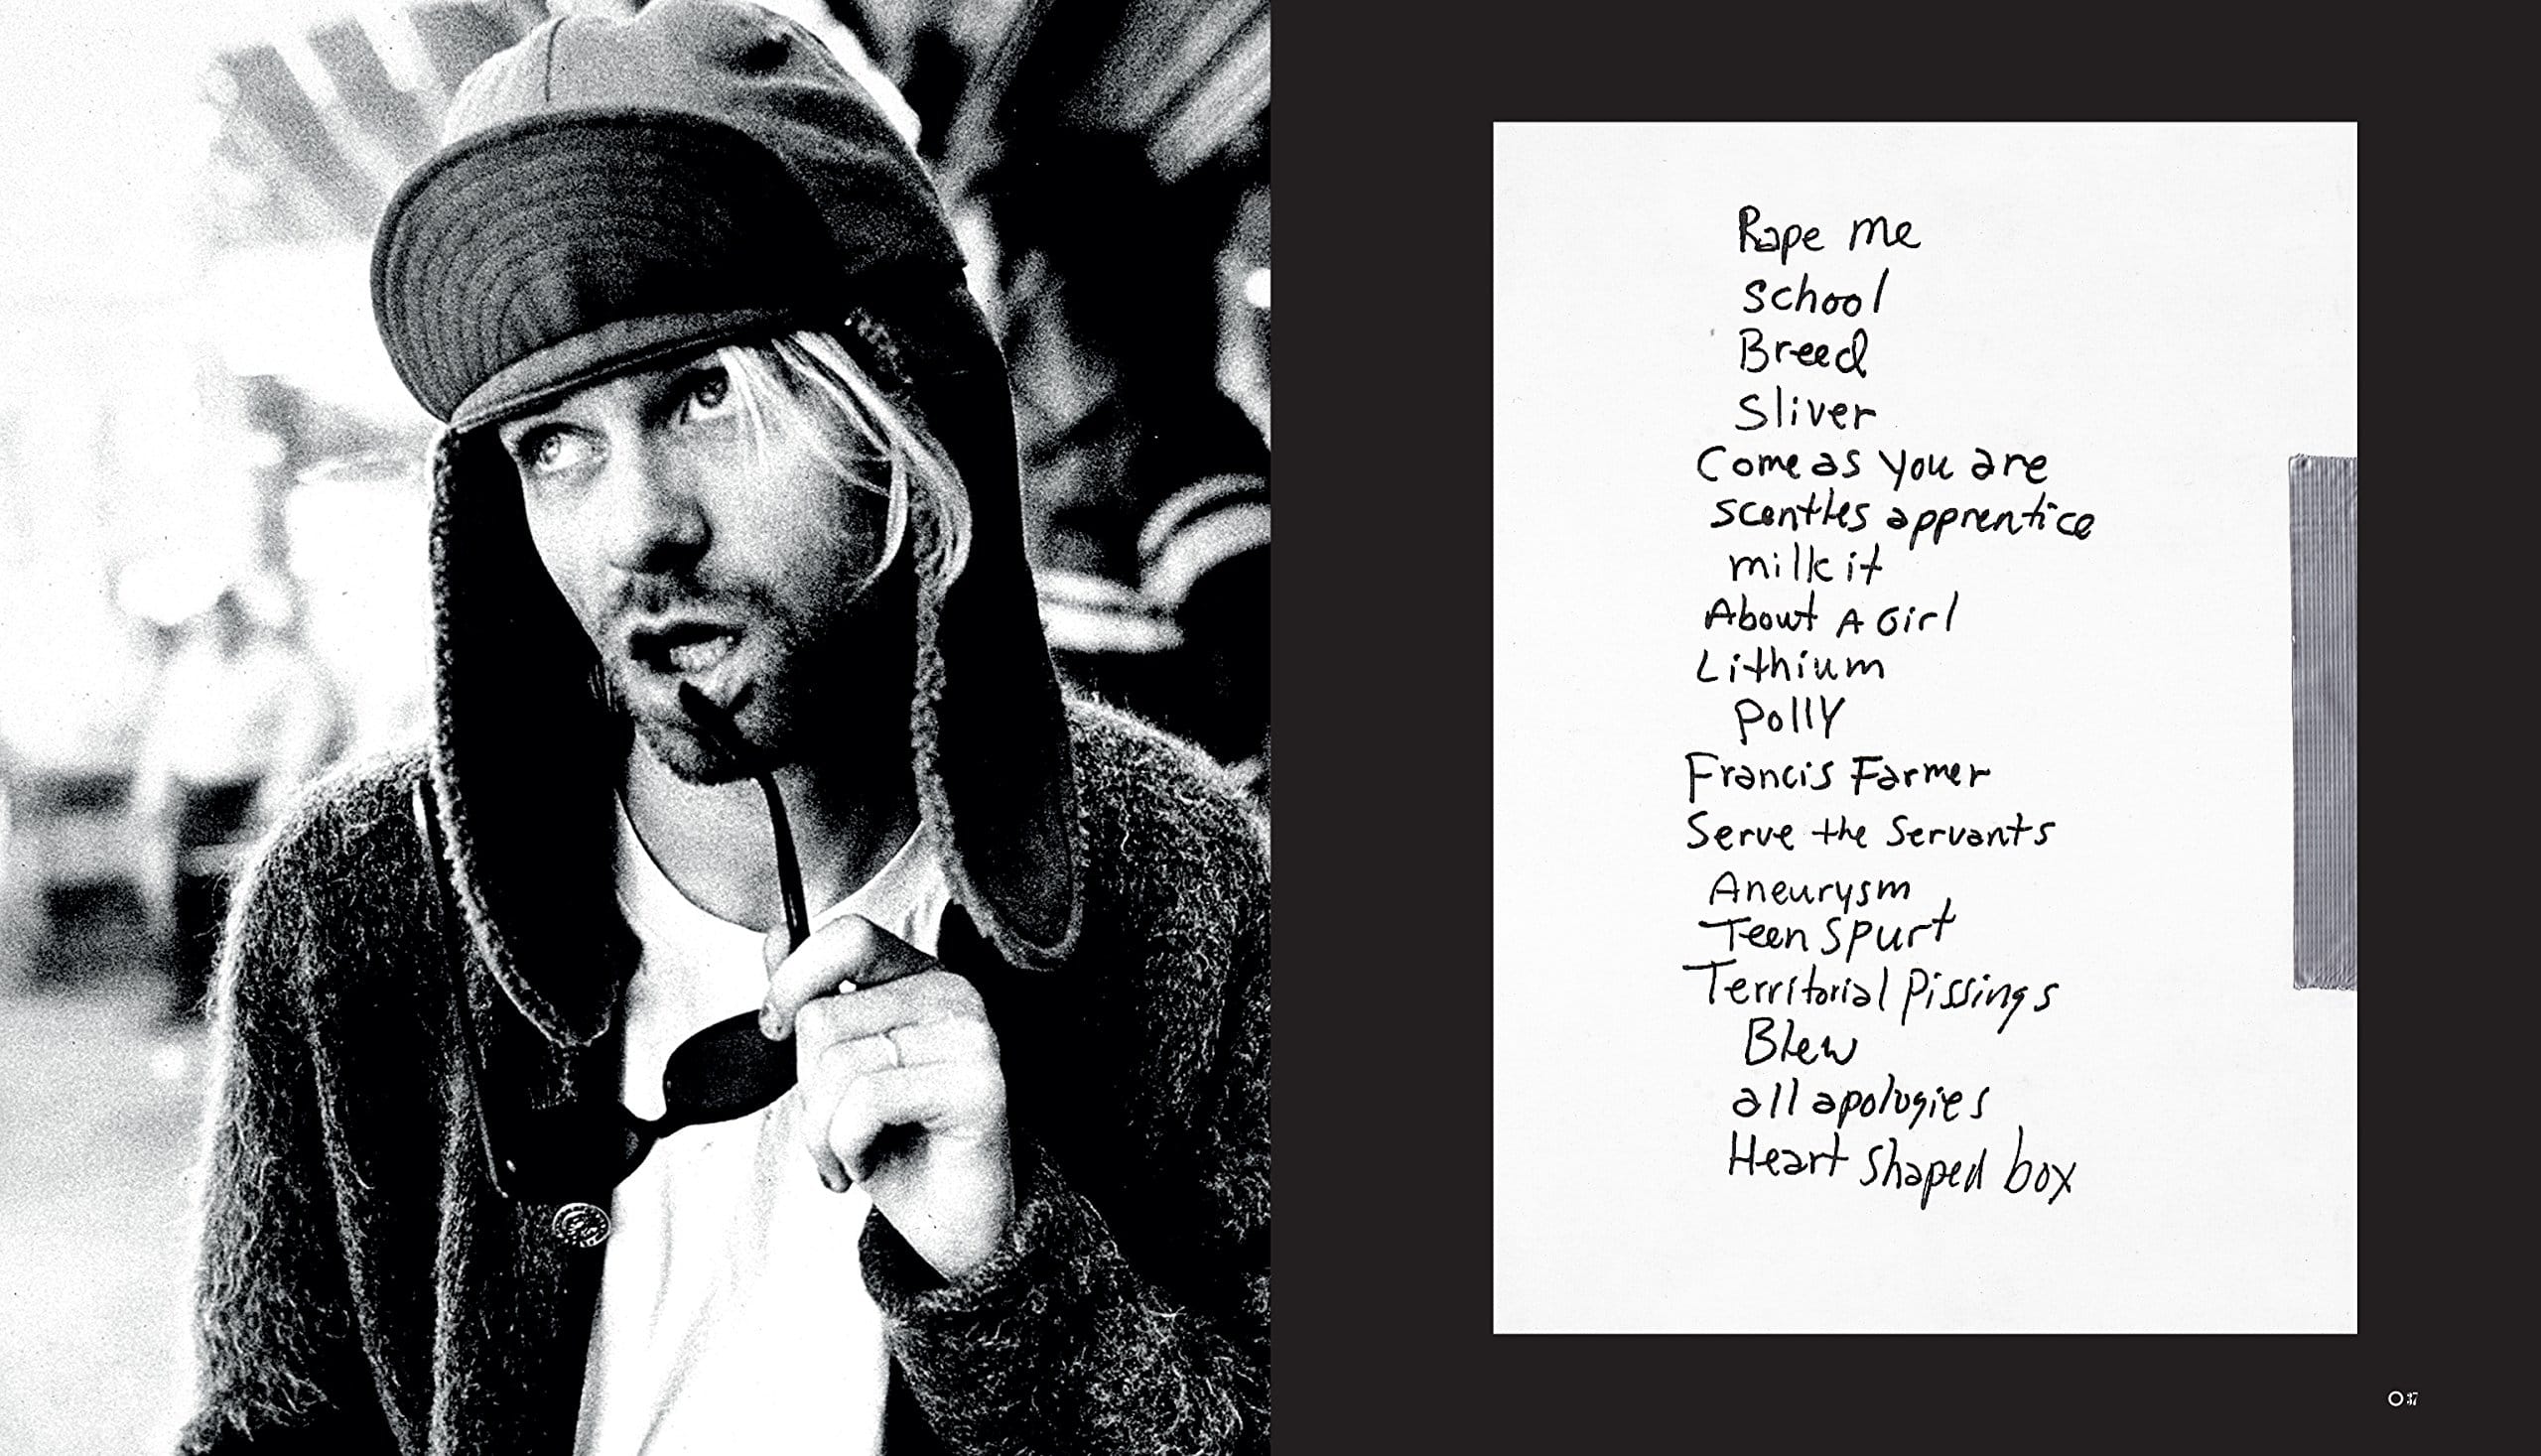 Rape me
School
Breed
Sliver
Come as you are
scentles apprentice
milk it
About A Girl
Lithium
Polly
Francis Farmer
Serve the Servants
Aneurysm
Teen Spurt
Territorial Pissings
Blew
all apologies
Heart Shaped box
37